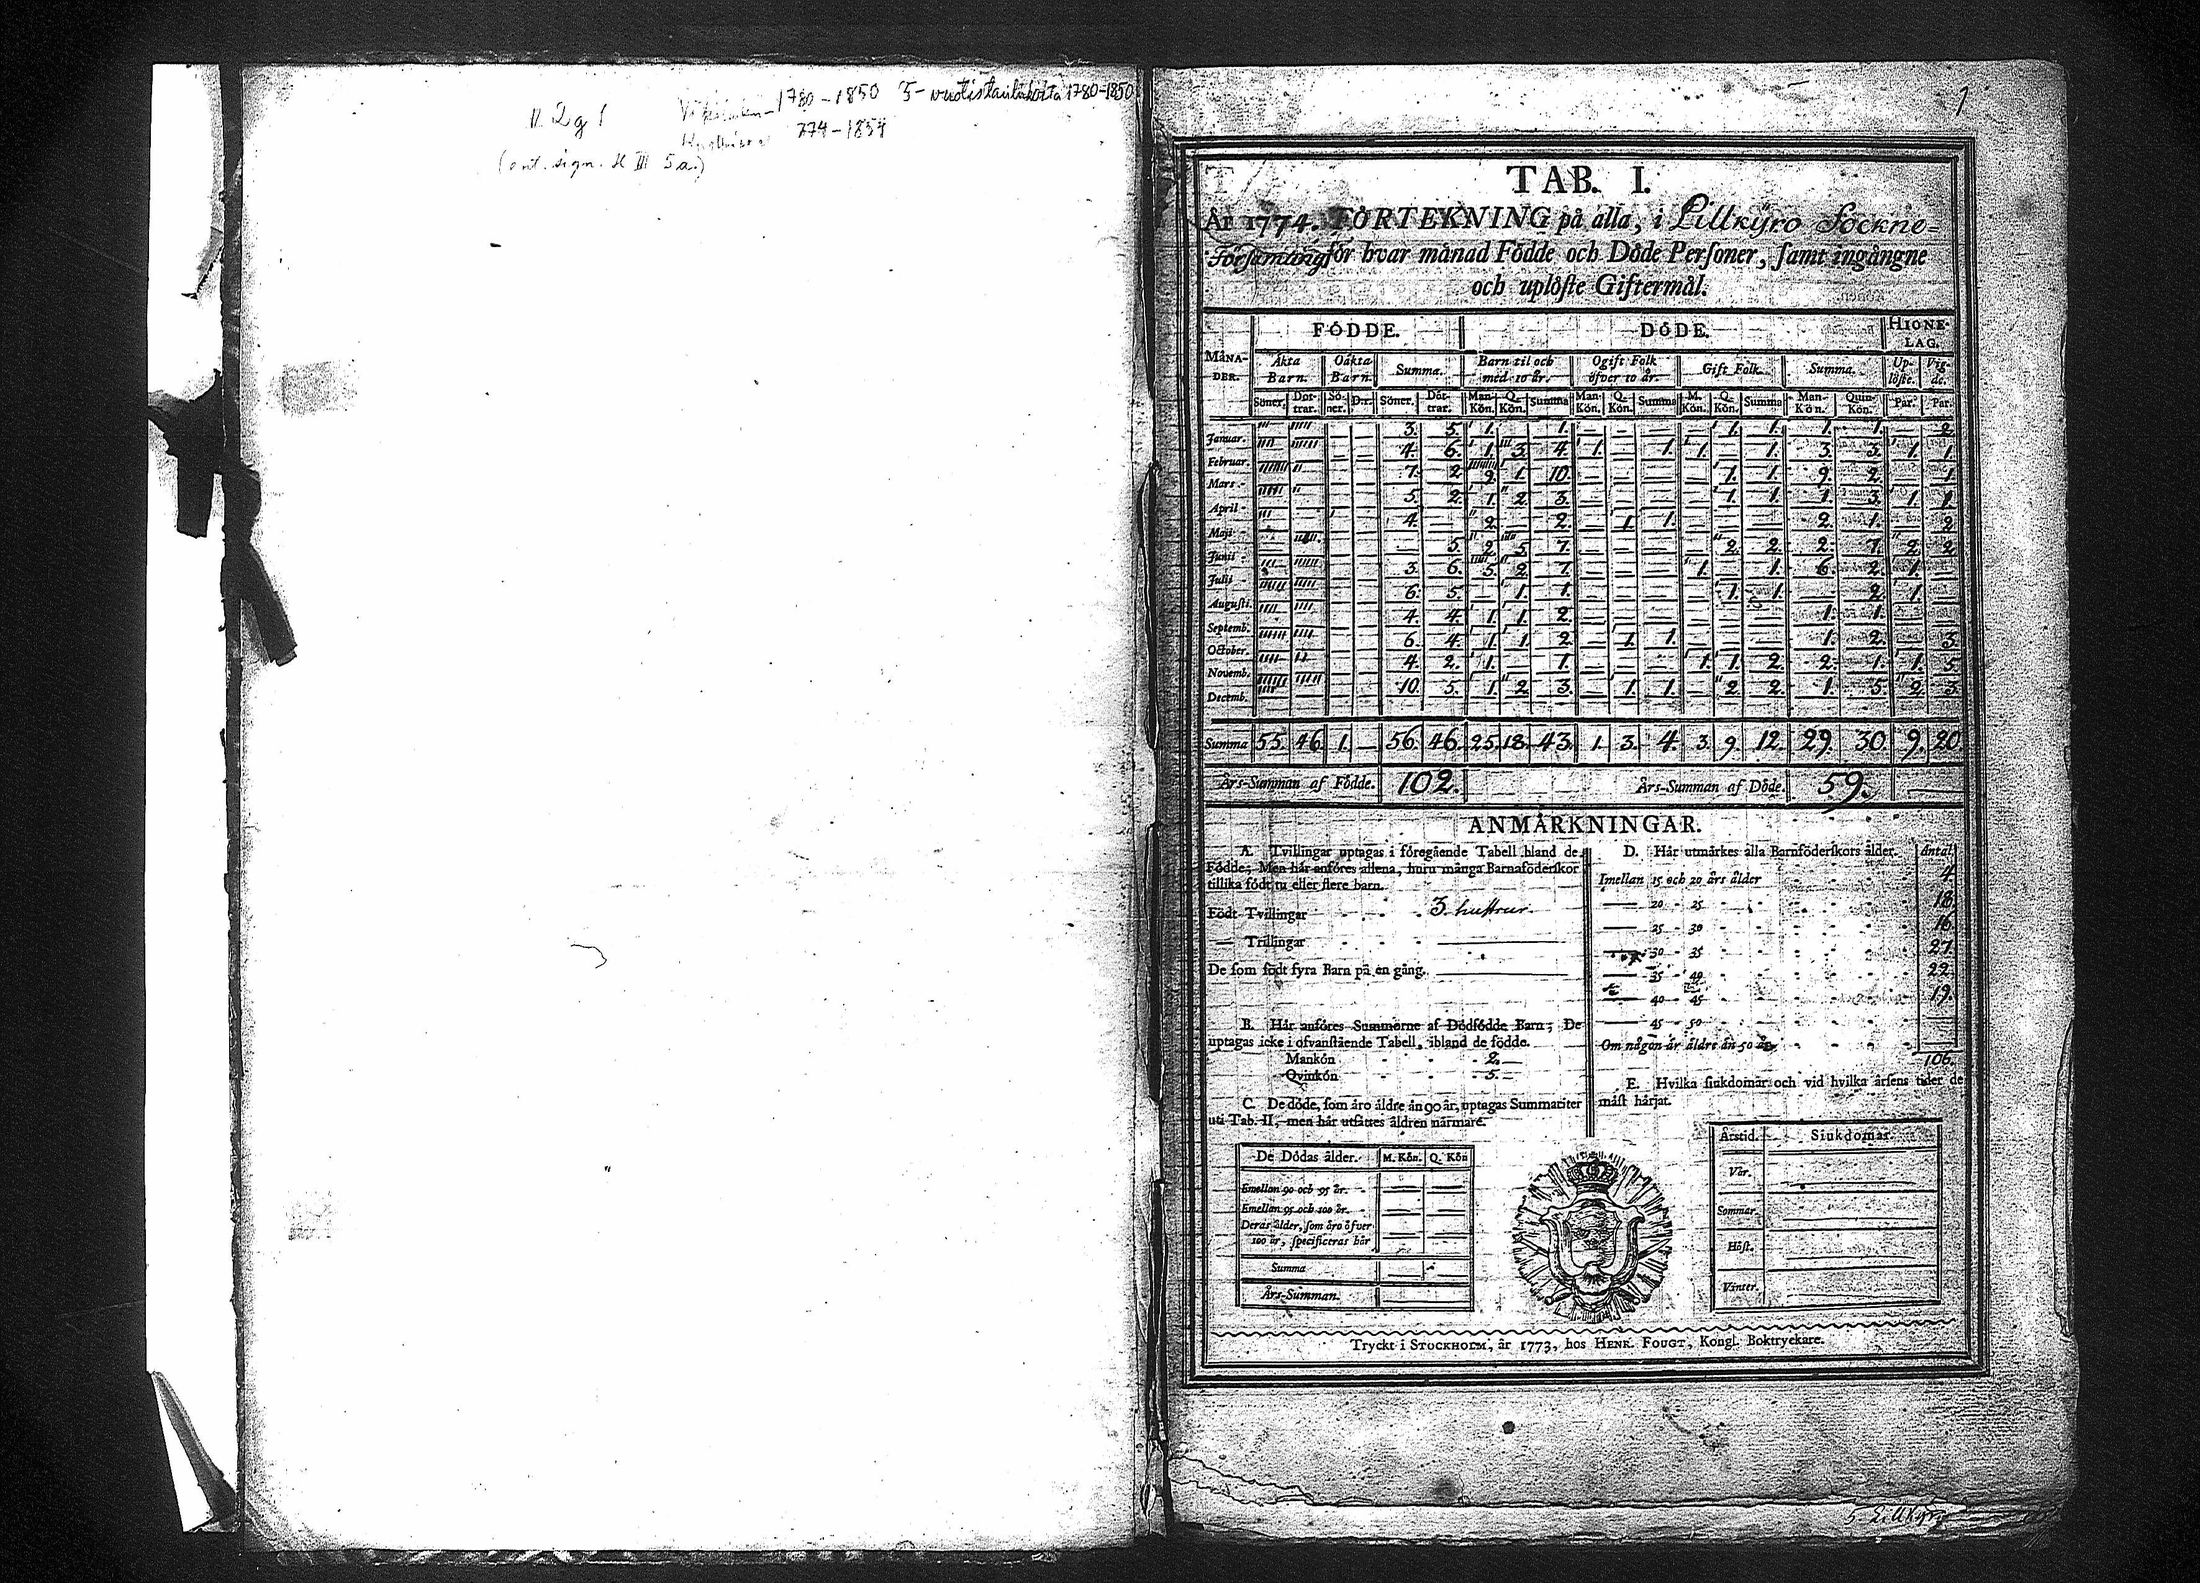 II 2 g 1
1780-1850 5-vuotistaulukoita 1780-1850
774-1854
(ent. sign. H III 5a.)
1
TAB. I.
År 1774. FÖRTEKNING på alla, i Lillkyro Sockne-
Församling för hvar månad Födde och Döde Personer, samt ingångne
och uplöste Giftermål.
MÅNA-DER. FÖDDE. DÖDE. HIONE-LAG.
Äkta Barn. Oäkta Barn. Summa. Barn til och med 10 år. Ogift Folk öfver 10 år. Gift Folk. Summa. Up-löste. Vig-de.
Söner. Döt-trar. Sö-ner. D:r. Söner. Döt-trar. Man-Kön. Q. Kön. Summa Man-Kön. Q. Kön. Summa M. Kön. Q. Kön. Summa Man-Kön. Quin-Kön. Par. Par.
Januar. 3. 5. 1. — 1. — — — — 1. 1. 1. 1. — 2
Februar. 4. 6. 1. 3. 4. 1. — 1. 1. — 1. 3. 3. 1. 1.
Mars 7. 2. 9. 1. 10. — — — — 1. 1. 9. 2. — 1.
April 5. 2. 1. 2. 3. — — — — 1. 1. 1. 3. 1. 1.
Maji 4. — 2. — 2. — 1. 1. — — — 2. 1. — 2
Junii — 5. 2. 5. 7. — — — — 2. 2. 2. 7. 2. 2
Julii 3. 6. 5. 2. 7. — — — 1. — 1. 6. 2. 1. —
Augusti. 6. 5. — 1. 1. — — — — 1. 1. — 2. 1. —
Septemb. 4. 4. 1. 1. 2. — — — — — — 1. 1. — —
October. 6. 4. 1. 1. 2. — 1. 1. — — — 1. 2. — 3.
Novemb. 4. 2. 1. — 1. — — — 1. 1. 2. 2. 1. 1. 5.
Decemb. 10. 5. 1. 2. 3. — 1. 1. — 2. 2. 1. 5. 2. 3.
Summa 55. 46. 1. — 56. 46. 25. 18. 43. 1. 3. 4. 3. 9. 12. 29. 30. 9. 20.
Års-Summan af Födde. 102. Års-Summan af Döde. 59.
ANMÄRKNINGAR.
A. Tvillingar uptagas i föregående Tabell bland de
Födde; Men här anföres allena, huru många Barnaföderskor
tillika födt tu eller flere barn.
Födt Tvillingar 3. hustrur.
— Trillingar
De som födt fyra Barn på en gång.
B. Här anföres Summorne af Dödfödde Barn; De
uptagas icke i ofvanstående Tabell, ibland de födde.
Mankön 2.
Qvinkön 5.
C. De döde, som äro äldre än 90 år, uptagas Summariter
uti Tab. II, men här utsättes åldren närmare.
De Dödas ålder. M. Kön. Q. Kön
Emellan 90 och 95 år.
Emellan 95 och 100 år.
Deras ålder, som äro öfver
100 år, specificeras här
Summa
Års-Summan.
D. Här utmärkes alla Barnföderskors ålder. Antal
Imellan 15 och 20 års ålder 4
— 20 - 25 18
— 25 - 30 16
— 30 - 35 27
— 35 - 40 22
— 40 - 45 19.
— 45 - 50
Om någon är äldre än 50 år
106.
E. Hvilka siukdomar och vid hvilka årsens tider de
mäst härjat.
Årstid. Siukdomar.
Vår.
Sommar.
Höst.
Vinter.
Tryckt i STOCKHOLM, år 1773, hos HENR. FOUGT, Kongl. Boktryckare.